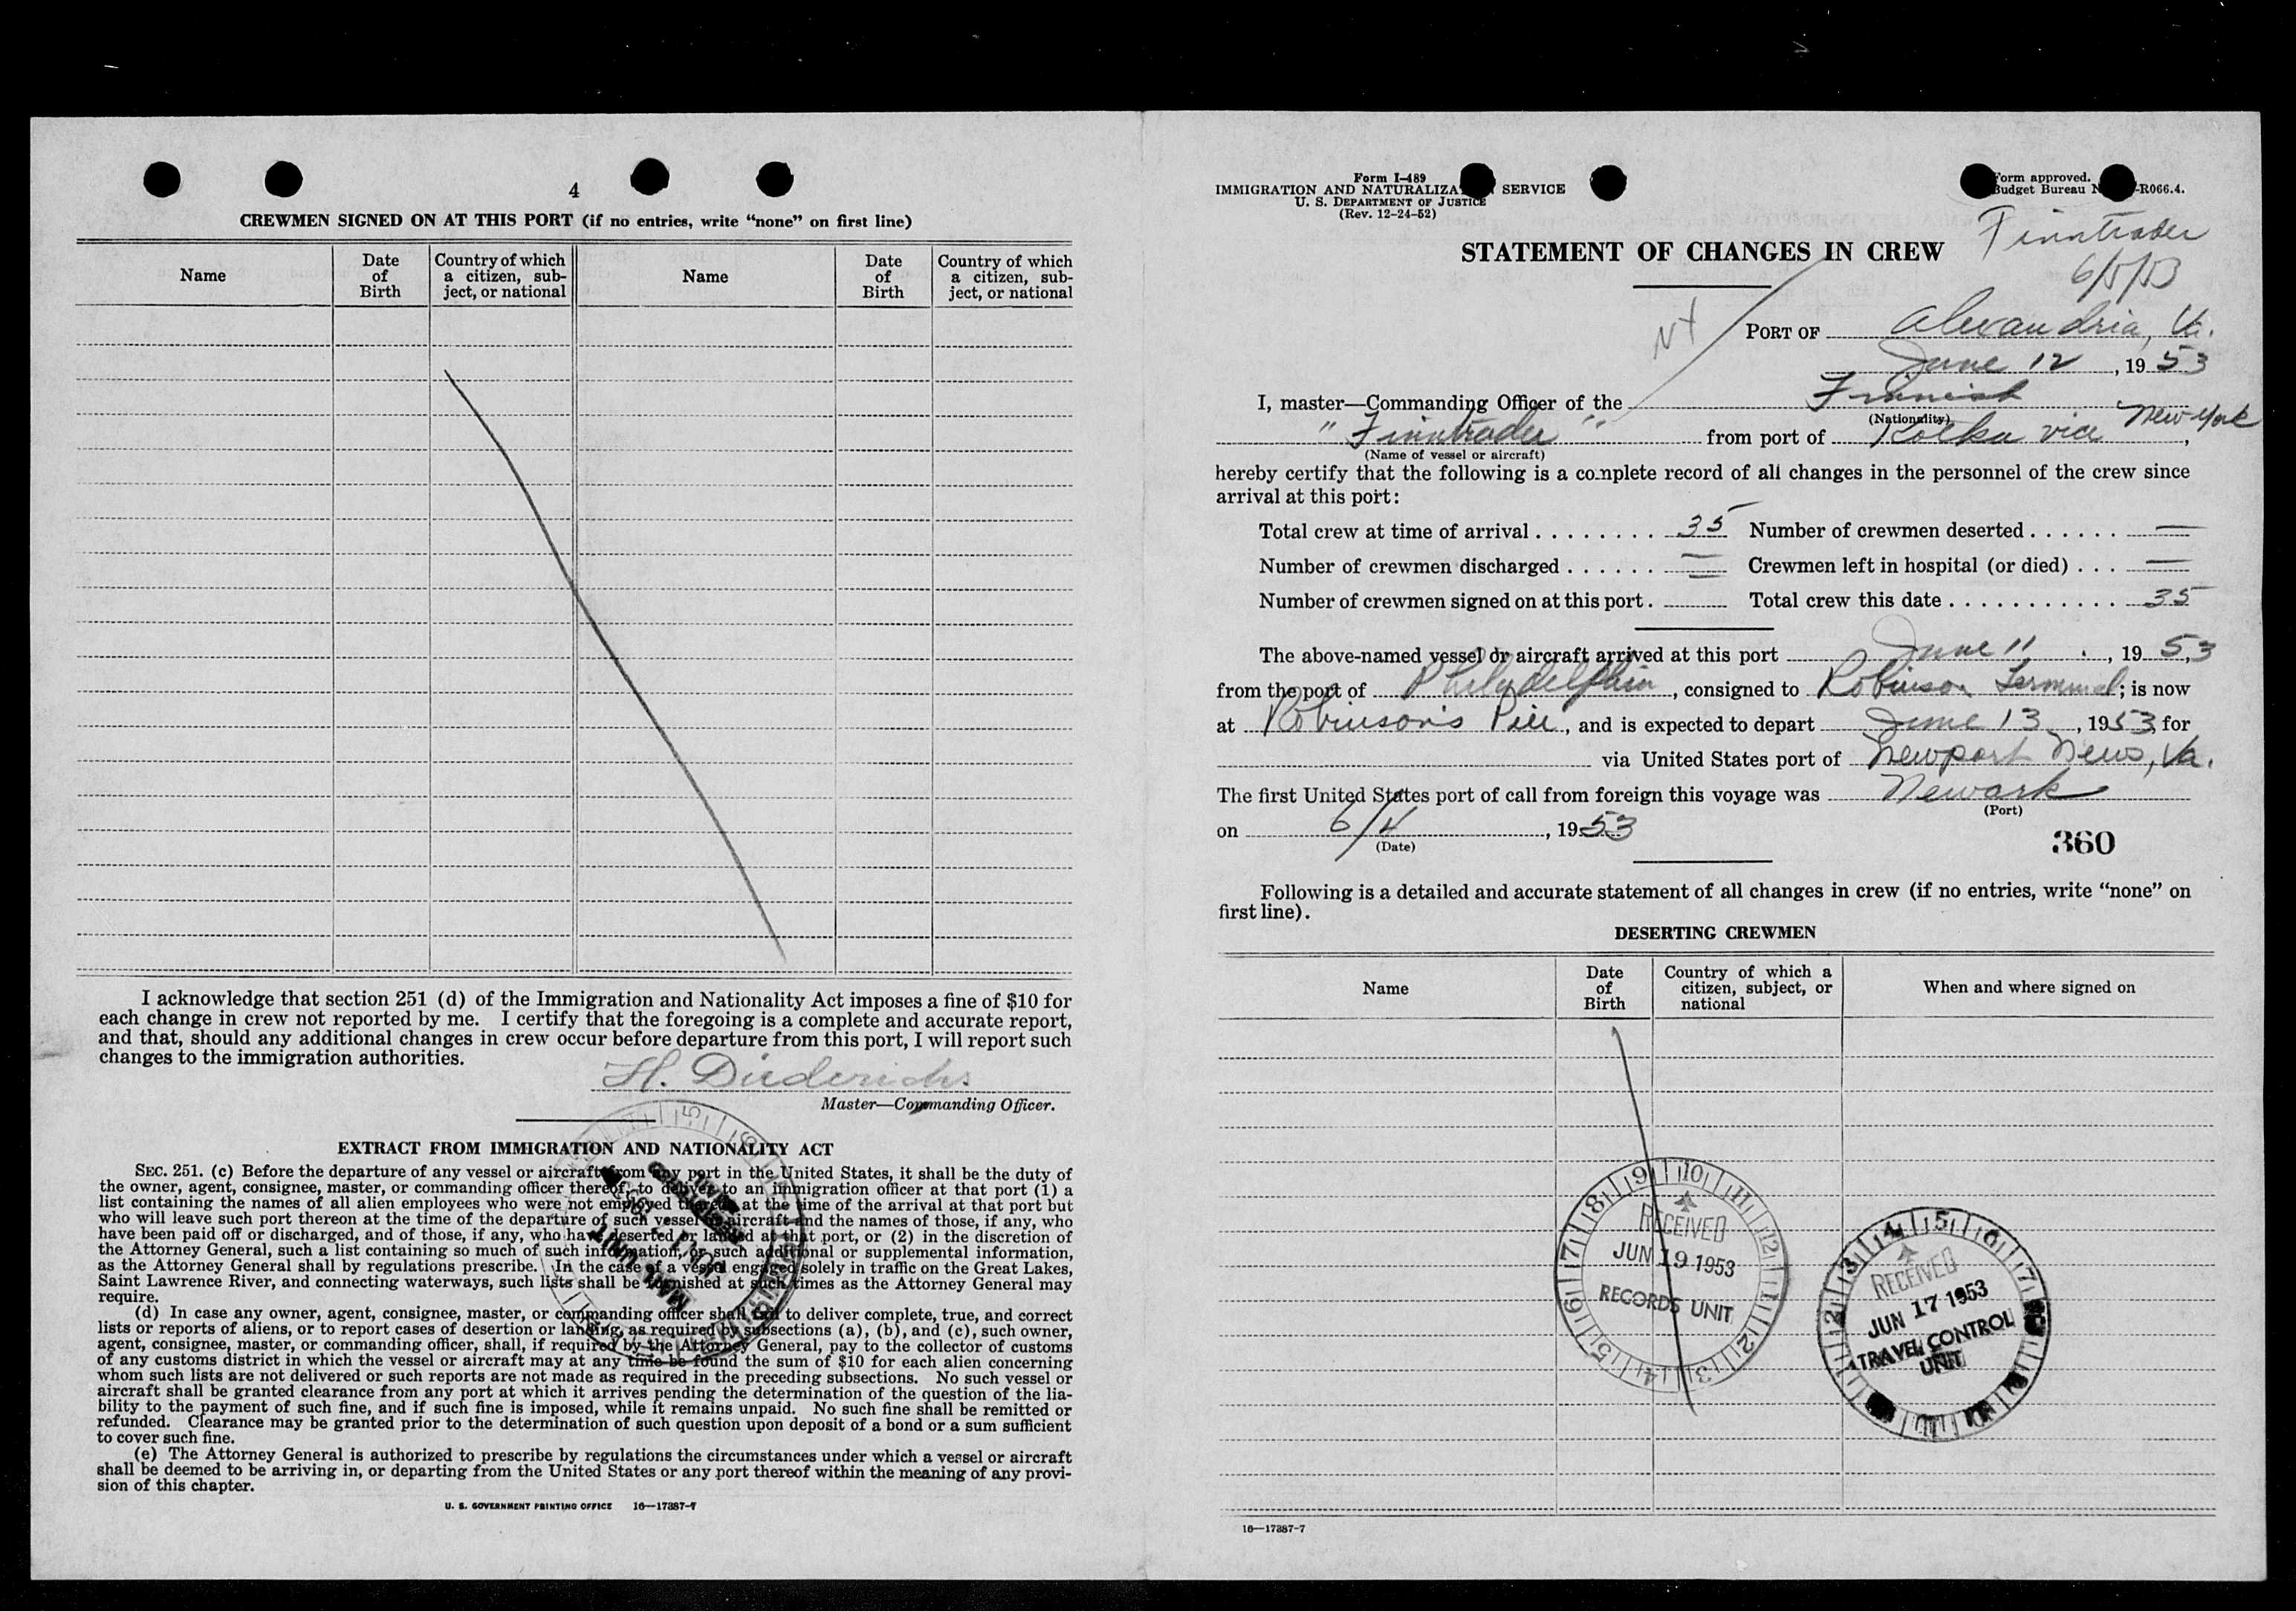 4
CREWMEN SIGNED ON AT THIS PORT (if no entries, write "none" on first line)
Name
Date
of
Birth
Country of which
a citizen, sub-
ject, or national
Name
Date
of
Birth
Country of which
a citizen, sub-
ject, or national
I acknowledge that section 251 (d) of the Immigration and Nationality Act imposes a fine of $10 for
each change in crew not reported by me. I certify that the foregoing is a complete and accurate report,
and that, should any additional changes in crew occur before departure from this port, I will report such
changes to the immigration authorities.
H. Diederichs
Master—Commanding Officer.
EXTRACT FROM IMMIGRATION AND NATIONALITY ACT
SEC. 251. (c) Before the departure of any vessel or aircraft from any port in the United States, it shall be the duty of
the owner, agent, consignee, master, or commanding officer thereof, to deliver to an immigration officer at that port (1) a
list containing the names of all alien employees who were not employed thereon at the time of the arrival at that port but
who will leave such port thereon at the time of the departure of such vessel or aircraft and the names of those, if any, who
have been paid off or discharged, and of those, if any, who have deserted or landed at that port, or (2) in the discretion of
the Attorney General, such a list containing so much of such information, or such additional or supplemental information,
as the Attorney General shall by regulations prescribe. In the case of a vessel engaged solely in traffic on the Great Lakes,
Saint Lawrence River, and connecting waterways, such lists shall be furnished at such times as the Attorney General may
require.
(d) In case any owner, agent, consignee, master, or commanding officer shall fail to deliver complete, true, and correct
lists or reports of aliens, or to report cases of desertion or landing, as required by subsections (a), (b), and (c), such owner,
agent, consignee, master, or commanding officer, shall, if required by the Attorney General, pay to the collector of customs
of any customs district in which the vessel or aircraft may at any time be found the sum of $10 for each alien concerning
whom such lists are not delivered or such reports are not made as required in the preceding subsections. No such vessel or
aircraft shall be granted clearance from any port at which it arrives pending the determination of the question of the lia-
bility to the payment of such fine, and if such fine is imposed, while it remains unpaid. No such fine shall be remitted or
refunded. Clearance may be granted prior to the determination of such question upon deposit of a bond or a sum sufficient
to cover such fine.
(e) The Attorney General is authorized to prescribe by regulations the circumstances under which a vessel or aircraft
shall be deemed to be arriving in, or departing from the United States or any port thereof within the meaning of any provi-
sion of this chapter.
U. S. GOVERNMENT PRINTING OFFICE 16—17387-7
Form I-489
IMMIGRATION AND NATURALIZA SERVICE
U. S. DEPARTMENT OF JUSTICE
(Rev. 12-24-52)
Form approved.
Budget Bureau N -R066.4.
STATEMENT OF CHANGES IN CREW
Finntrader
6/5/53
PORT OF Alexandria, Va.
June 12, 1953
I, master—Commanding Officer of the Finnish
(Nationality)
"Finntrader" from port of Kotka vice New York,
(Name of vessel or aircraft)
hereby certify that the following is a complete record of all changes in the personnel of the crew since
arrival at this port:
Total crew at time of arrival . . . . . . . . 35 Number of crewmen deserted . . . . . . —
Number of crewmen discharged . . . . . . — Crewmen left in hospital (or died) . . . —
Number of crewmen signed on at this port . — Total crew this date . . . . . . . . . . . . 35
The above-named vessel or aircraft arrived at this port June 11, 1953
from the port of Philadelphia, consigned to Robinson Terminal; is now
at Robinson's Pier, and is expected to depart June 13, 1953, for
via United States port of Newport News, Va.
The first United States port of call from foreign this voyage was Newark
(Port)
on 6/4, 1953
(Date)
360
Following is a detailed and accurate statement of all changes in crew (if no entries, write "none" on
first line).
DESERTING CREWMEN
Name
Date
of
Birth
Country of which a
citizen, subject, or
national
When and where signed on
RECEIVED
JUN 19 1953
RECORDS UNIT
RECEIVED
JUN 17 1953
TRAVEL CONTROL
UNIT
16—17387-7